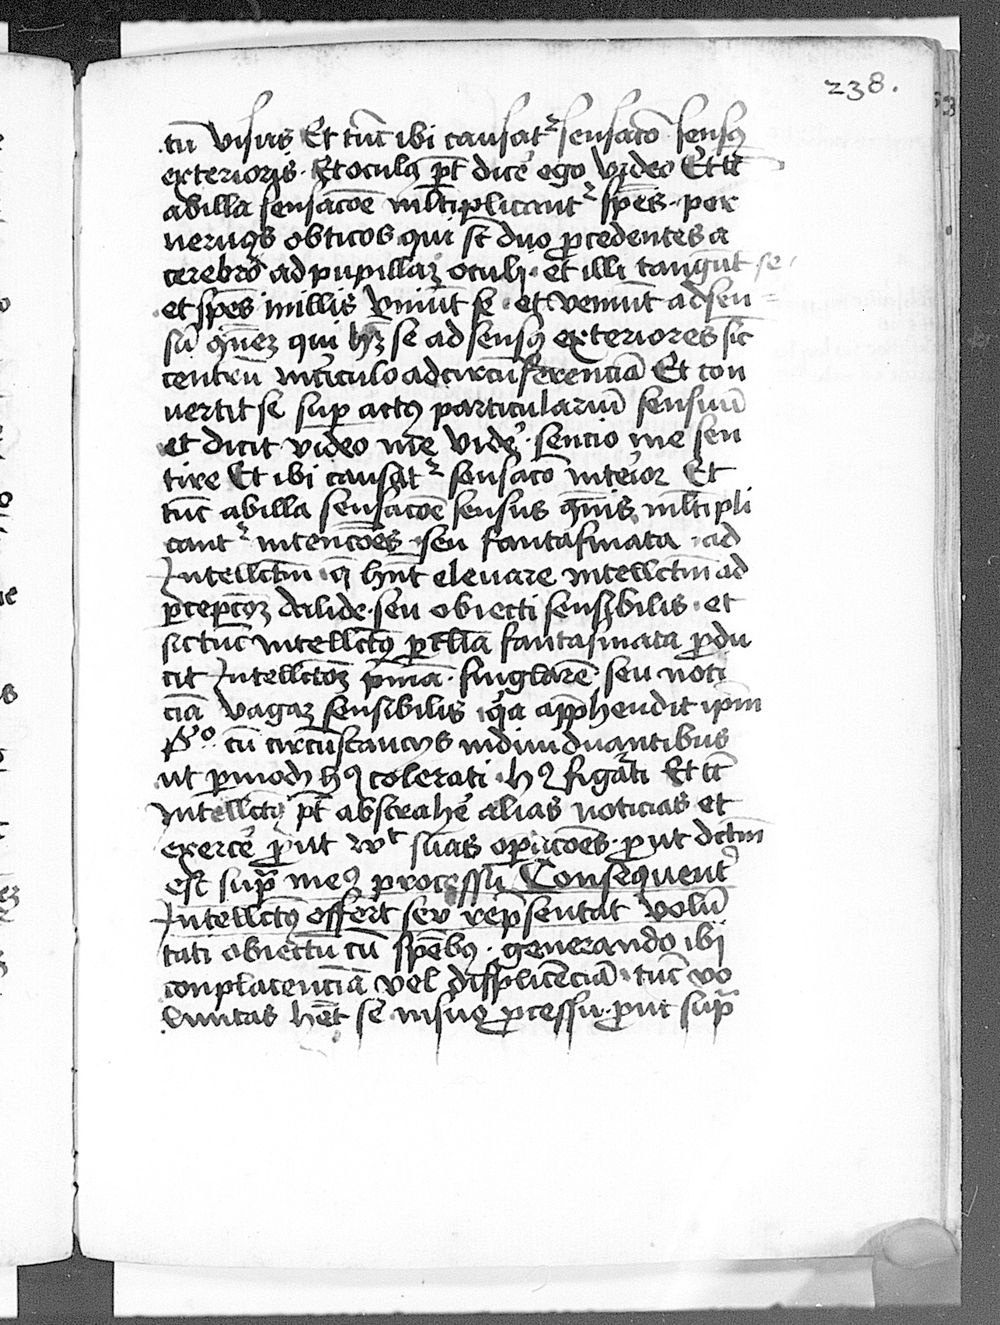 238.
tū visus Et tūc ibi causat᷑ sensacō sensꝯ
exterioris. Et oculꝯ pt̄ dic̄e ego video Et tc̄
ab illa sensacōe ml̄tiplicant᷑ spēs. per
neruos obticos qui st̄ duo p̄cedentes a
cerebro ad pupillaꝫ oculi. et illi tangūt se.
et spēs in illis vniūt se. et veniūt ad sen=
sū qūeꝫ qui hꝫ se ad sensꝯ exteriores sic̄
centrū in circulo ad circūferenciā Et con
uertit se sup actꝯ particulariū sensuū
et dicit video me vide᷑. sencio me sen
tire Et ibi causat᷑ sensacō inte᷑ior Et
tūc ab illa sensacōe sensus qūis ml̄tipli
cant᷑ intencōes. seu fantasmata. ad
Intellctm̄. q̄ hn̄t eleuare intellctm̄ ad
p̄cepcōꝫ seu obiecti sensibilis. et
sic tūc intellctꝯ p illa fantasmata ꝓdu
cit Intellctōꝫ p̄mā. singlarē. seu noti
ciā vagaꝫ sensibilis. q̄a app̄hendit ip̄m
cū circūstanciis indiuiduantibus
ut p modū hꝰ colerati. hꝰ figa᷑ti Et tc̄
Intellctꝯ pt̄ abstrahe᷑ alias noticias et
exerce᷑ ꝓut suas op̄acōes. ꝓut dctm̄
est sup̄ processū Consequent᷑
Intellctꝯ offert seu rep̄sentat volū
tati obiectū cū spēbꝯ. generando ibi
conplacenciā vel displicēciā. tūc vo
luntas hēt se in suo ꝓcessu. ꝓut sup̄